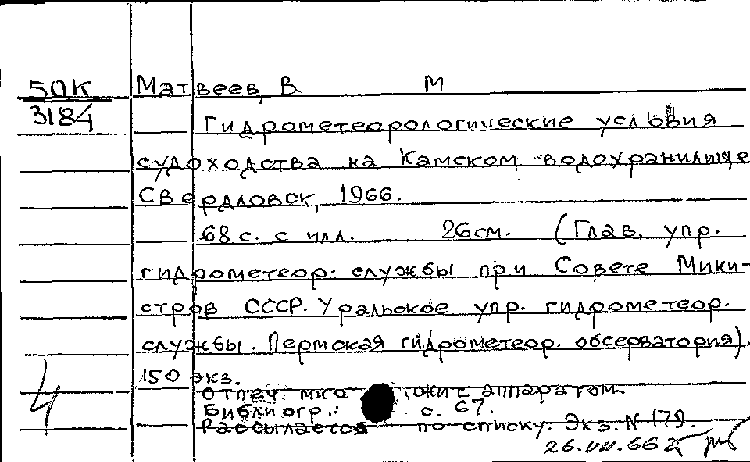 50К Матвеев, В М
3184 Гидрометеорологические условия
судоходства на Камском водохранилище
Свердловск, 1966.
68 с. с илл. 26 см. (Глав. упр.
гидрометеор. службы при Совете Мини-
стров СССР. Уральское упр. гидрометеор.
службы. Пермская гидрометеор. обсерватория).
150 экз.
4 Отпеч. аппаратом.
Библиогр.: с. 67.
Рассылается по списку. Экз. № 179.